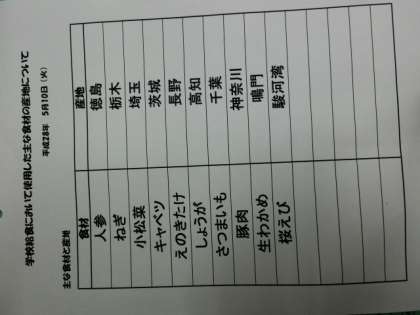 学校給食において使用した主な食材の産地について
平成28年 5月10日(火)
主な食材と産地
食材 産地
人参 徳島
ねぎ 栃木
小松菜 埼玉
キャベツ 茨城
えのきたけ 長野
しょうが 高知
さつまいも 千葉
豚肉 神奈川
生わかめ 鳴門
桜えび 駿河湾